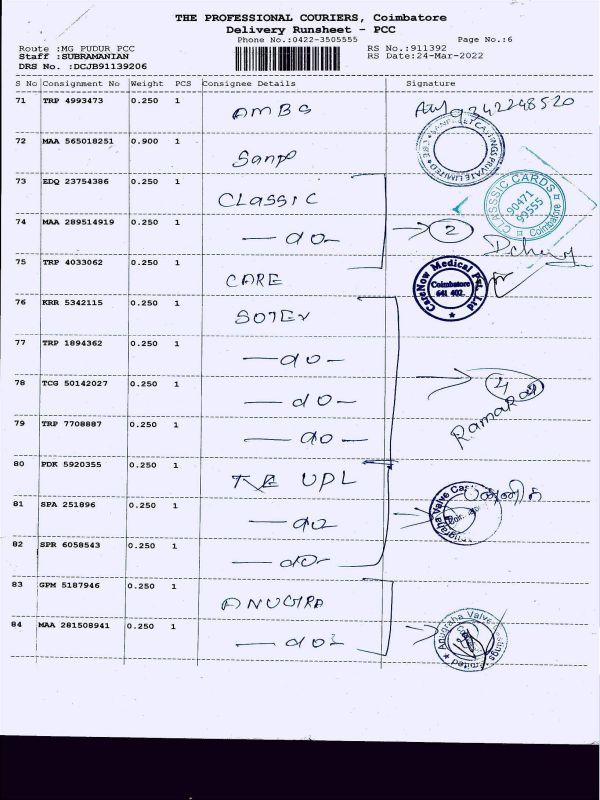 THE PROFESSIONAL COURIERS, Coimbatore
Delivery Runsheet - PCC
Phone No.:0422-3505555
Page No.:6
Route :MG PUDUR PCC
RS No.:911392
Staff :SUBRAMANIAN
RS Date:24-Mar-2022
DRS No. :DCJB91139206
S No Consignment No Weight PCS Consignee Details Signature
71 TRP 4993473 0.250 1 AMBS 9342248520
72 MAA 565018251 0.900 1 Sanp
PRIVATE LIMITED
73 EDQ 23754386 0.250 1 CLASSIC
CLASSSIC CARDS
90471
99555
Coimbatore
74 MAA 289514919 0.250 1 - do - 2
75 TRP 4033062 0.250 1 CARE
CareNow Medical Pvt. Ltd
Coimbatore
641 402
76 KRR 5342115 0.250 1 SOTEV
77 TRP 1894362 0.250 1 - do -
78 TCG 50142027 0.250 1 - do - 4
79 TRP 7708887 0.250 1 - do -
80 PDK 5920355 0.250 1 UPL
81 SPA 251896 0.250 1 - do
82 SPR 6058543 0.250 1 - do -
83 GPM 5187946 0.250 1 ANUGRA
84 MAA 281508941 0.250 1 - do -
Anugraha Valve Castings Limited